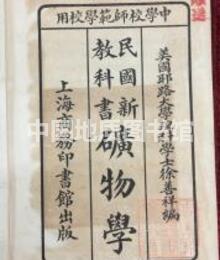 用校範師校學中
美國耶路大學理學士徐善祥編
民國新
教科書
礦物學
上海商務印書館出版